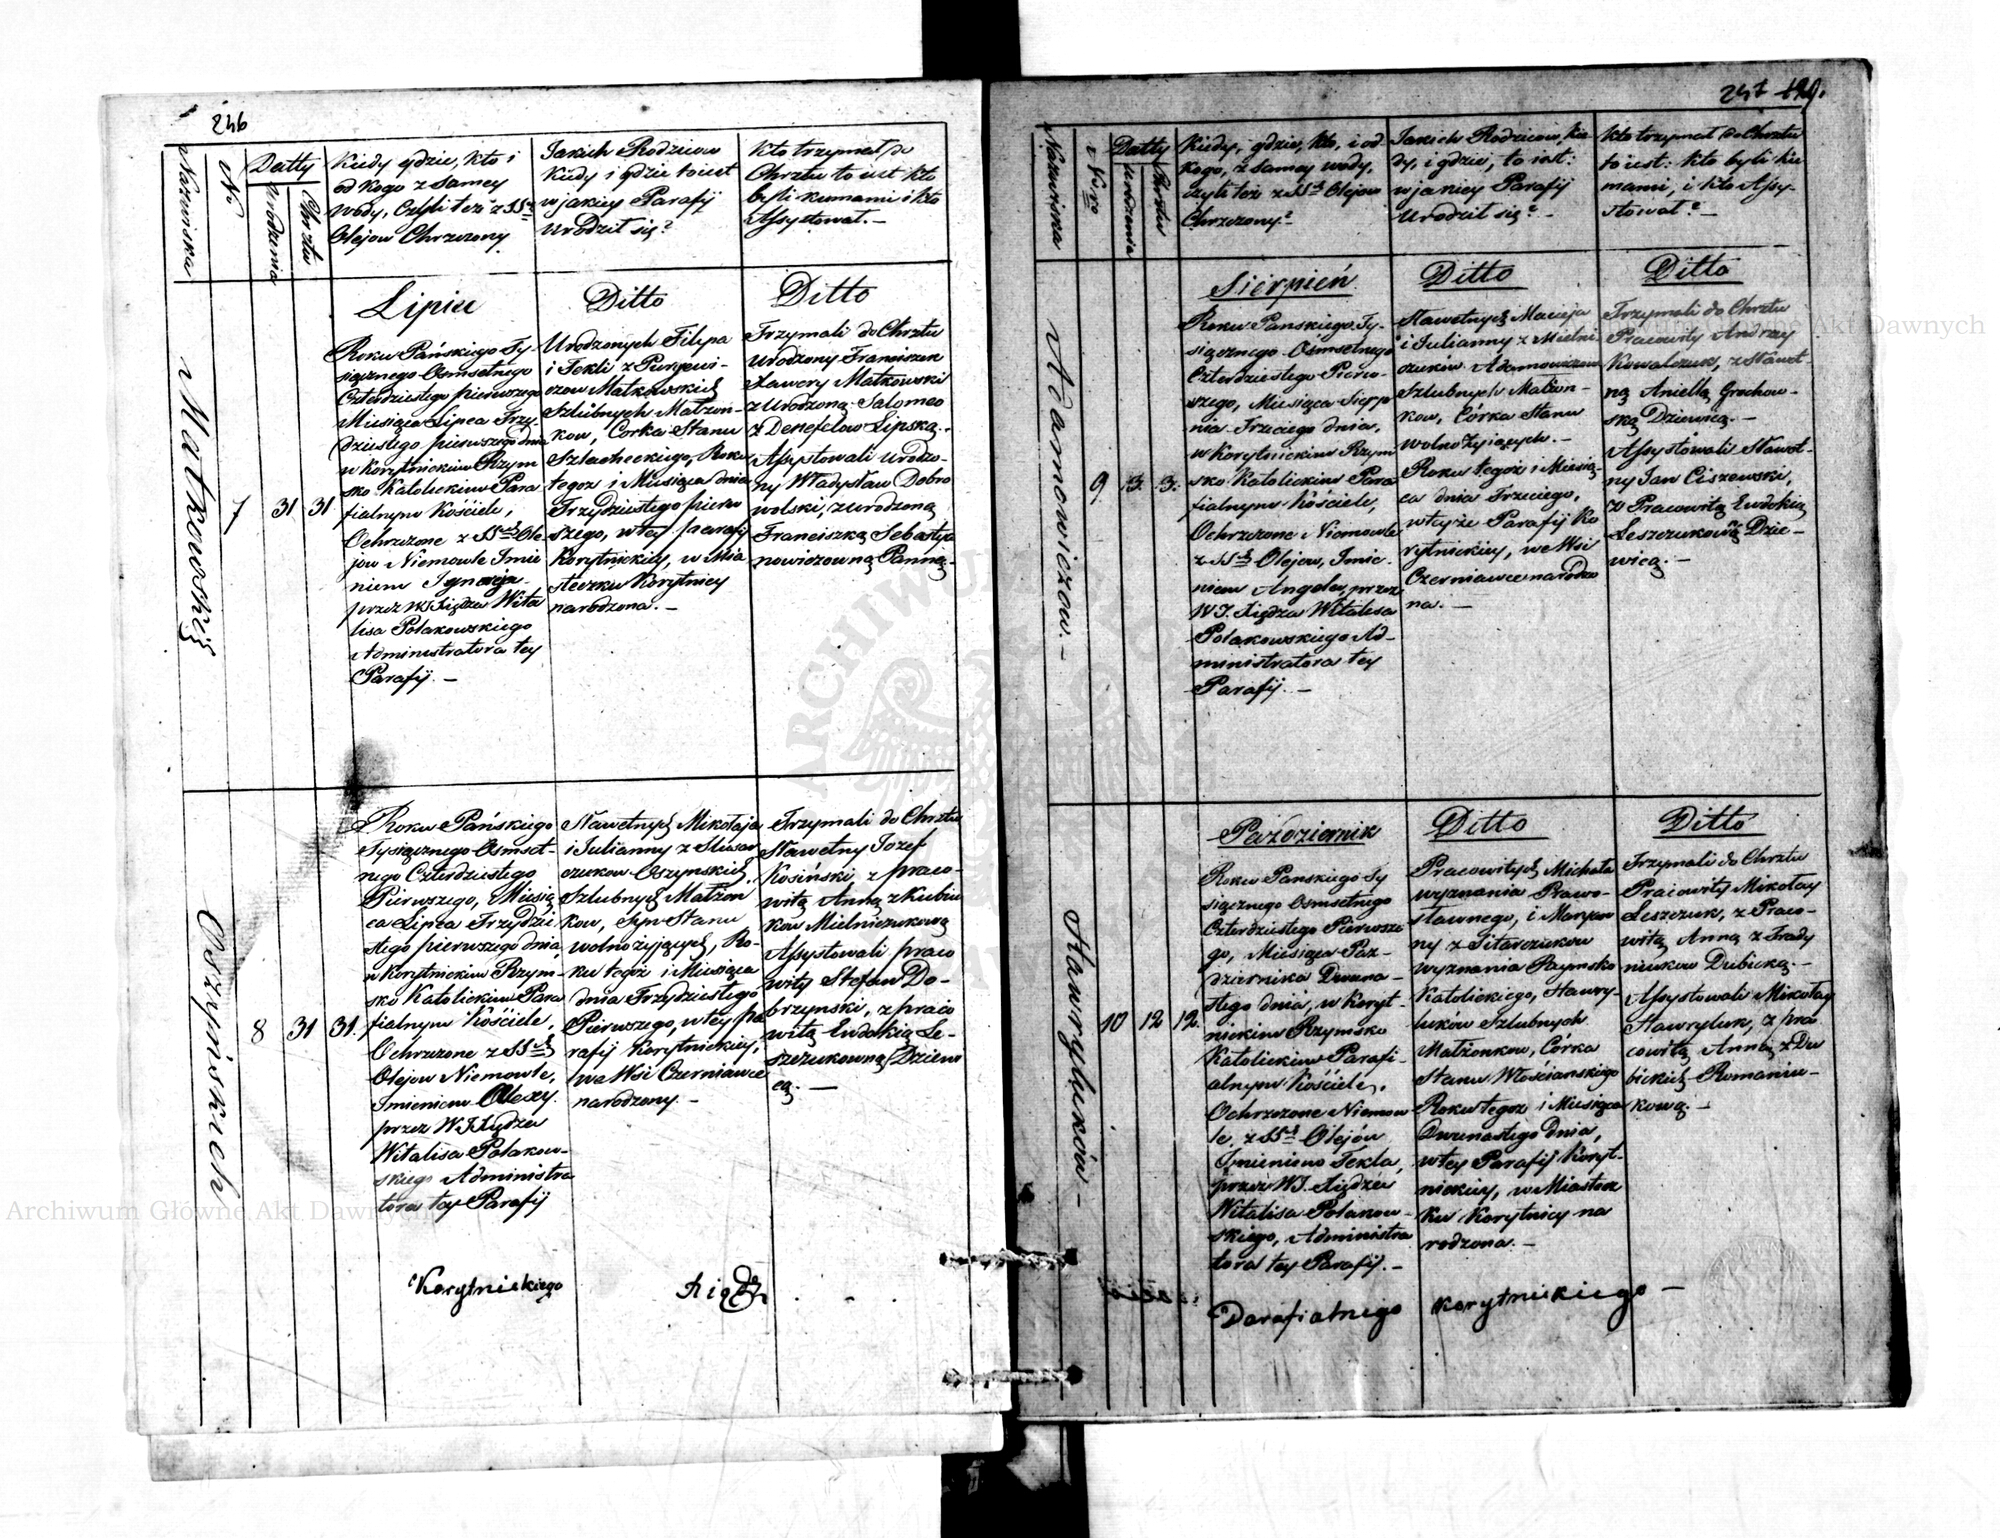 246
Nazwiska
No
Datty
Urodzenia
Chrztu
Kiedy gdzie, kto i
od kogo z samey
wody, Czyli też z SSch
Olejow Chrzczony
Jakich Rodziców
kiedy i gdzie to iest
w jakiey Parafij
Urodził się?
Kto trzymał do
Chrztu to iest kto
byli kumami i kto
Assystował. —
Matkowskij
7
31
31
Lipiec
Roku Pańskiego Ty-
siącznego Osmsetnego
Czterdziestego pierwszego
Miesiąca Lipca Trzy-
dziestego pierwszego dnia
w Korytnickim Rzym
sko Katolickim Para
fialnym Kościele,
Ochrzczone z SSch Ole-
jow Niemowle Imie-
niem Ignacja
przez WJ Xiędza Wita
lisa Polakowskiego
Administratora tey
Parafij. —
Ditto
Urodzonych Filipa
i Tekli z
Matkowskich
Szlubnych Małżon-
kow, Corka Stanu
Szlacheckiego, Roku
tegoż i Miesiąca dnia
Trzydziestego pierw
szego, w tey parafij
Korytnickiey, w Mia
steczku Korytnicy
narodzona. —
Ditto
Trzymali do Chrztu
Urodzony Franciszek
Xawery Matkowski
z Urodzoną Salomeo
z Lipską.
Assystowali Urodzo-
ny Władysław Dobro
wolski, z urodzoną
Franciszką Sebastya
nowiczowną Panną. —
Oszyńskich
8
31
31.
Roku Pańskiego
Tysiącznego Osmset-
nego Czterdziestego
Pierwszego, Miesią
ca Lipca Trzydzie
stego pierwszego dnia
w Korytnickim Rzym-
sko Katolickim Para
fialnym Kościele,
Ochrzczone z SSch
Olejow Niemowle,
Imieniem Alexy
przez WJ Xiędza
Witalisa Polakow-
skiego Administra
tora tey Parafij
Sławetnych Mikołaja
i Julianny z Slusar
czukow Oszynskich,
Szlubnych Małżon
kow, Syn Stanu
wolno żyjących, Ro-
ku tegoż i Miesiąca
dnia Trzydziestego
Pierwszego, w tey pa
rafij Korytnickiey,
we Wsi Czerniawce
narodzony. —
Trzymali do Chrztu
Sławetny Jozef
Kosiński z praco-
witą Anną z Kubiu
kow Mielniczukową
Assystowali praco
wity Stefan Do-
brzynski, z praco
witą Ewdokią Le-
szczukowną Dziewi
cą. —
Korytnickiego
Xięg
247 129.
Nazwiska
Nro
Datty
Urodzenia
Chrztu
Kiedy, gdzie, kto, i od
kogo, z samey wody,
czyli też z SSch Olejow
Chrzczony?
Jakich Rodzicow, kie
dy, i gdzie, to iest:
w jakiey Parafij
Urodził się? —
Kto trzymał do Chrztu
to iest: kto byli ku
mami, i kto Assy-
stował? —
Adamowiczow. —
9
3.
3.
Sierpień
Roku Panskiego Ty-
siącznego Osmsetnego
Czterdziestego Pierw-
szego, Miesiąca Sierp
nia Trzeciego dnia,
w Korytnickim Rzym
sko Katolickim Para
fialnym Kościele,
Ochrzczone Niemowle
z SSch Olejow, Imie-
niem Angela, przez
WJ. Xiędza Witalisa
Polakowskiego Ad-
ministratora tey
Parafij. —
Ditto
Sławetnych Macieja
i Julianny z Mielni
czuków Adamowiczow
Szlubnych Małżon-
kow, Córka Stanu
wolno żyjących. —
Roku tegoż i Miesią-
ca dnia Trzeciego,
w tey że Parafij Ko
rytnickiey, we Wsi
Czerniawce narodzo
na. —
Ditto
Trzymali do Chrztu
Pracowity Andrzey
Kowalczuk, z Sławet-
ną Anielą Grochow-
ską Dziewicą. —
Assystowali Sławet-
ny Jan Ciszewski,
z Pracowitą Ewdokią
Leszczukowną Dzie-
wicą. —
Hawryluków —
10
12
12.
Październik
Roku Panskiego Ty
siącznego Osmsetnego
Czterdziestego Pierwsze
go, Miesiąca Paź-
dziernika Dwuna-
stego dnia, w Koryt-
nickim Rzymsko
Katolickim Parafi-
alnym Kościele,
Ochrzczone Niemow-
le, z SSch Olejów
Imieniem Tekla,
przez WJ. Xiędza
Witalisa Polakow-
skiego, Administra
tora tey Parafij. —
Ditto
Pracowitych Michała
wyznania Prawo-
sławnego, i Maryan
ny z Sitarczukow
wyznania Rzymsko
Katolickiego, Hawry-
luków Szlubnych
Małżonkow, Corka
Stanu Włościanskiego
Roku tegoż i Miesiąca
Dwunastego dnia,
w tey Parafij Koryt-
nickiey, w Miastecz
ku Korytnicy na
rodzona. —
Ditto
Trzymali do Chrztu
Pracowity Mikołay
Leszczuk, z Praco-
witą Anną z Frady
niukow Dubicką. —
Assystowali Mikołay
Hawryluk, z pra
cowitą Anną z Du
bickich Romaniu-
kową. —
Parafialnego
Korytnickiego —
Archiwum Główne Akt Dawnych